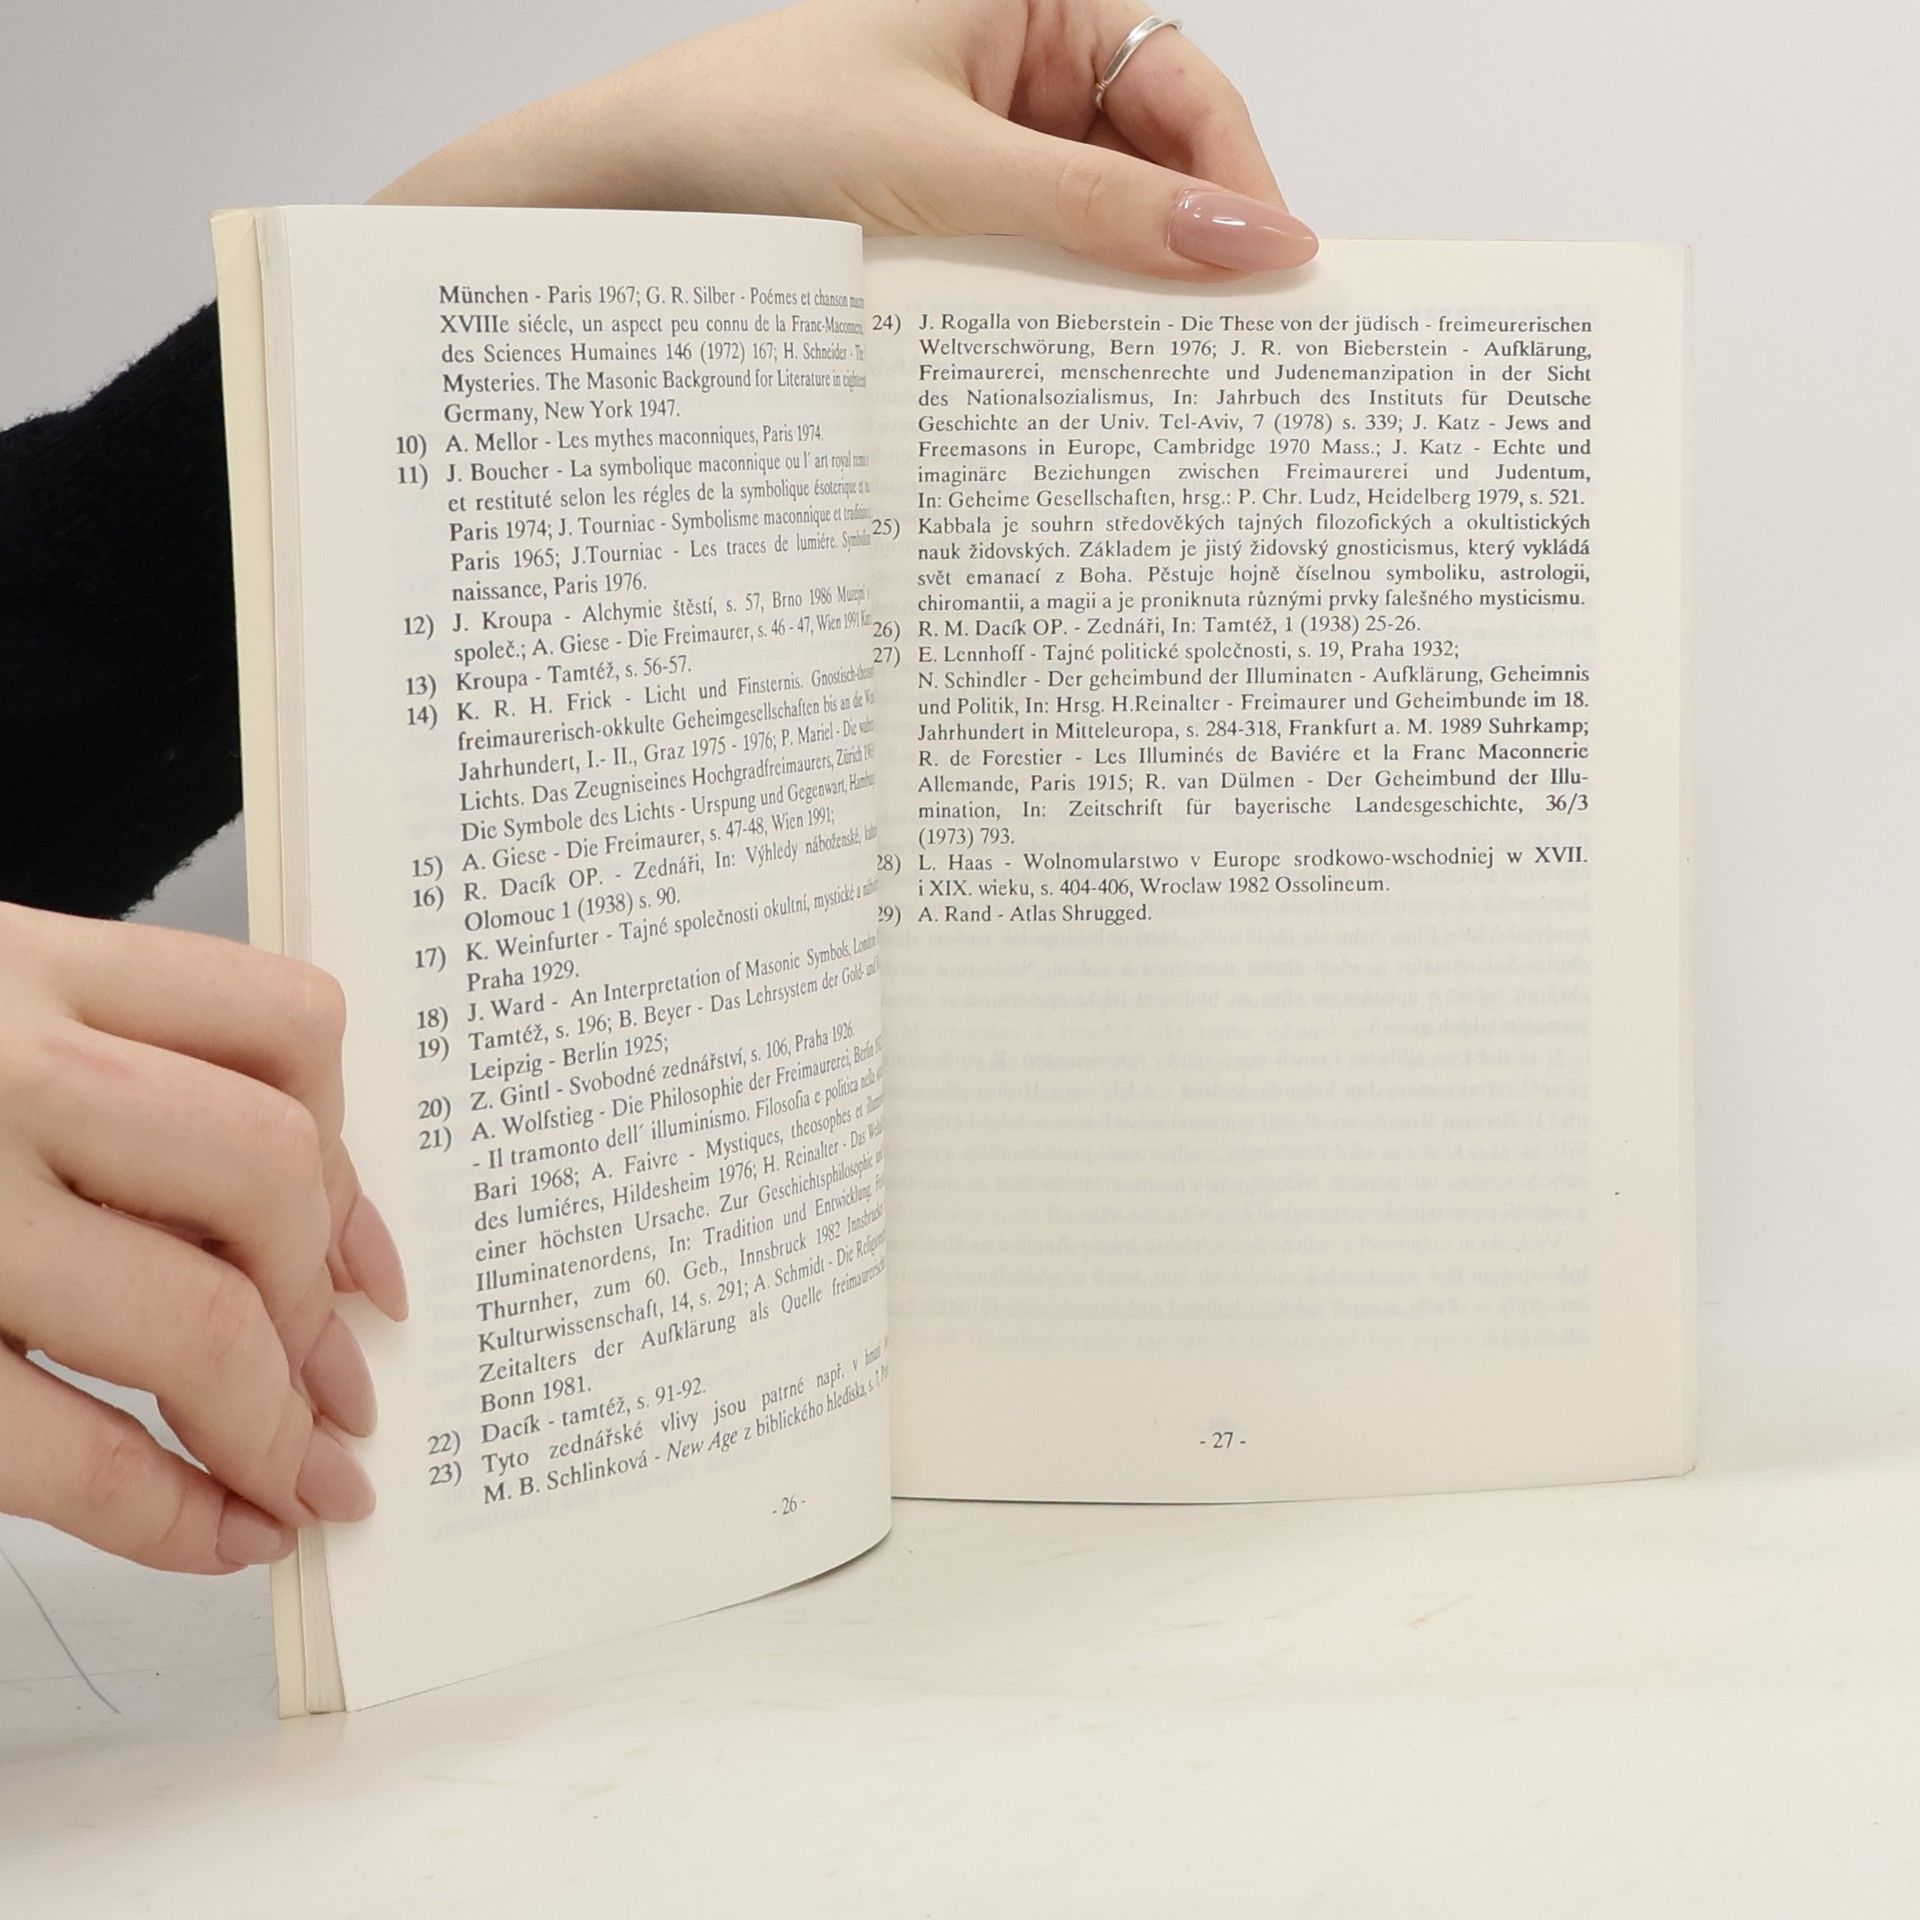 München - Paris 1967; G. R. Silber - Poémes et chanson
XVIIIe siécle, un aspect peu connu de la Franc-Maconnerie,
des Sciences Humaines 146 (1972) 167; H. Schneider -
Mysteries. The Masonic Background for Literature in
Germany, New York 1947.
10) A. Mellor - Les mythes maconniques, Paris 1974.
11) J. Boucher - La symbolique maconnique ou l´ art royal
et restituté selon les régles de la symbolique ésoterique et
Paris 1974; J. Tourniac - Symbolisme maconnique et
Paris 1965; J.Tourniac - Les traces de lumiére.
naissance, Paris 1976.
12) J. Kroupa - Alchymie štěstí, s. 57, Brno 1986 Muzejní
společ.; A. Giese - Die Freimaurer, s. 46 - 47, Wien 1991
13) Kroupa - Tamtéž, s. 56-57.
14) K. R. H. Frick - Licht und Finsternis.
freimaurerisch-okkulte Geheimgesellschaften bis an die
Jahrhundert, I.- II., Graz 1975 - 1976; P. Mariel - Die
Lichts. Das Zeugniseines Hochgradfreimaurers, Zürich
Die Symbole des Lichts - Urspung und Gegenwart,
15) A. Giese - Die Freimaurer, s. 47-48, Wien 1991;
16) R. Dacík OP. - Zednáři, In: Výhledy náboženské,
Olomouc 1 (1938) s. 90.
17) K. Weinfurter - Tajné společnosti okultní, mystické a
Praha 1929.
18) J. Ward - An Interpretation of Masonic Symbols, London
19) Tamtéž, s. 196; B. Beyer - Das Lehrsystem der Gold-
Leipzig - Berlin 1925;
20) Z. Gintl - Svobodné zednářství, s. 106, Praha 1926.
21) A. Wolfstieg - Die Philosophie der Freimaurerei, Berlin
- Il tramonto dell´ illuminismo. Filosofia e politica nella
Bari 1968; A. Faivre - Mystiques, theosophes et
des lumiéres, Hildesheim 1976; H. Reinalter - Das
einer höchsten Ursache. Zur Geschichtsphilosophie
Illuminatenordens, In: Tradition und Entwicklung.
Thurnher, zum 60. Geb., Innsbruck 1982
Kulturwissenschaft, 14, s. 291; A. Schmidt - Die
Zeitalters der Aufklärung als Quelle
Bonn 1981.
22) Dacík - tamtéž, s. 91-92.
23) Tyto zednářské vlivy jsou patrné např. v hnutí
M. B. Schlinková - New Age z biblického hlediska, s. 7,
- 26 -
24) J. Rogalla von Bieberstein - Die These von der jüdisch - freimeurerischen
Weltverschwörung, Bern 1976; J. R. von Bieberstein - Aufklärung,
Freimaurerei, menschenrechte und Judenemanzipation in der Sicht
des Nationalsozialismus, In: Jahrbuch des Instituts für Deutsche
Geschichte an der Univ. Tel-Aviv, 7 (1978) s. 339; J. Katz - Jews and
Freemasons in Europe, Cambridge 1970 Mass.; J. Katz - Echte und
imaginäre Beziehungen zwischen Freimaurerei und Judentum,
In: Geheime Gesellschaften, hrsg.: P. Chr. Ludz, Heidelberg 1979, s. 521.
25) Kabbala je souhrn středověkých tajných filozofických a okultistických
nauk židovských. Základem je jistý židovský gnosticismus, který vykládá
svět emanací z Boha. Pěstuje hojně číselnou symboliku, astrologii,
chiromantii, a magii a je proniknuta různými prvky falešného mysticismu.
26) R. M. Dacík OP. - Zednáři, In: Tamtéž, 1 (1938) 25-26.
27) E. Lennhoff - Tajné politické společnosti, s. 19, Praha 1932;
N. Schindler - Der geheimbund der Illuminaten - Aufklärung, Geheimnis
und Politik, In: Hrsg. H.Reinalter - Freimaurer und Geheimbunde im 18.
Jahrhundert in Mitteleuropa, s. 284-318, Frankfurt a. M. 1989 Suhrkamp;
R. de Forestier - Les Illuminés de Baviére et la Franc Maconnerie
Allemande, Paris 1915; R. van Dülmen - Der Geheimbund der Illu-
mination, In: Zeitschrift für bayerische Landesgeschichte, 36/3
(1973) 793.
28) L. Haas - Wolnomularstwo v Europe srodkowo-wschodniej w XVII.
i XIX. wieku, s. 404-406, Wroclaw 1982 Ossolineum.
29) A. Rand - Atlas Shrugged.
- 27 -